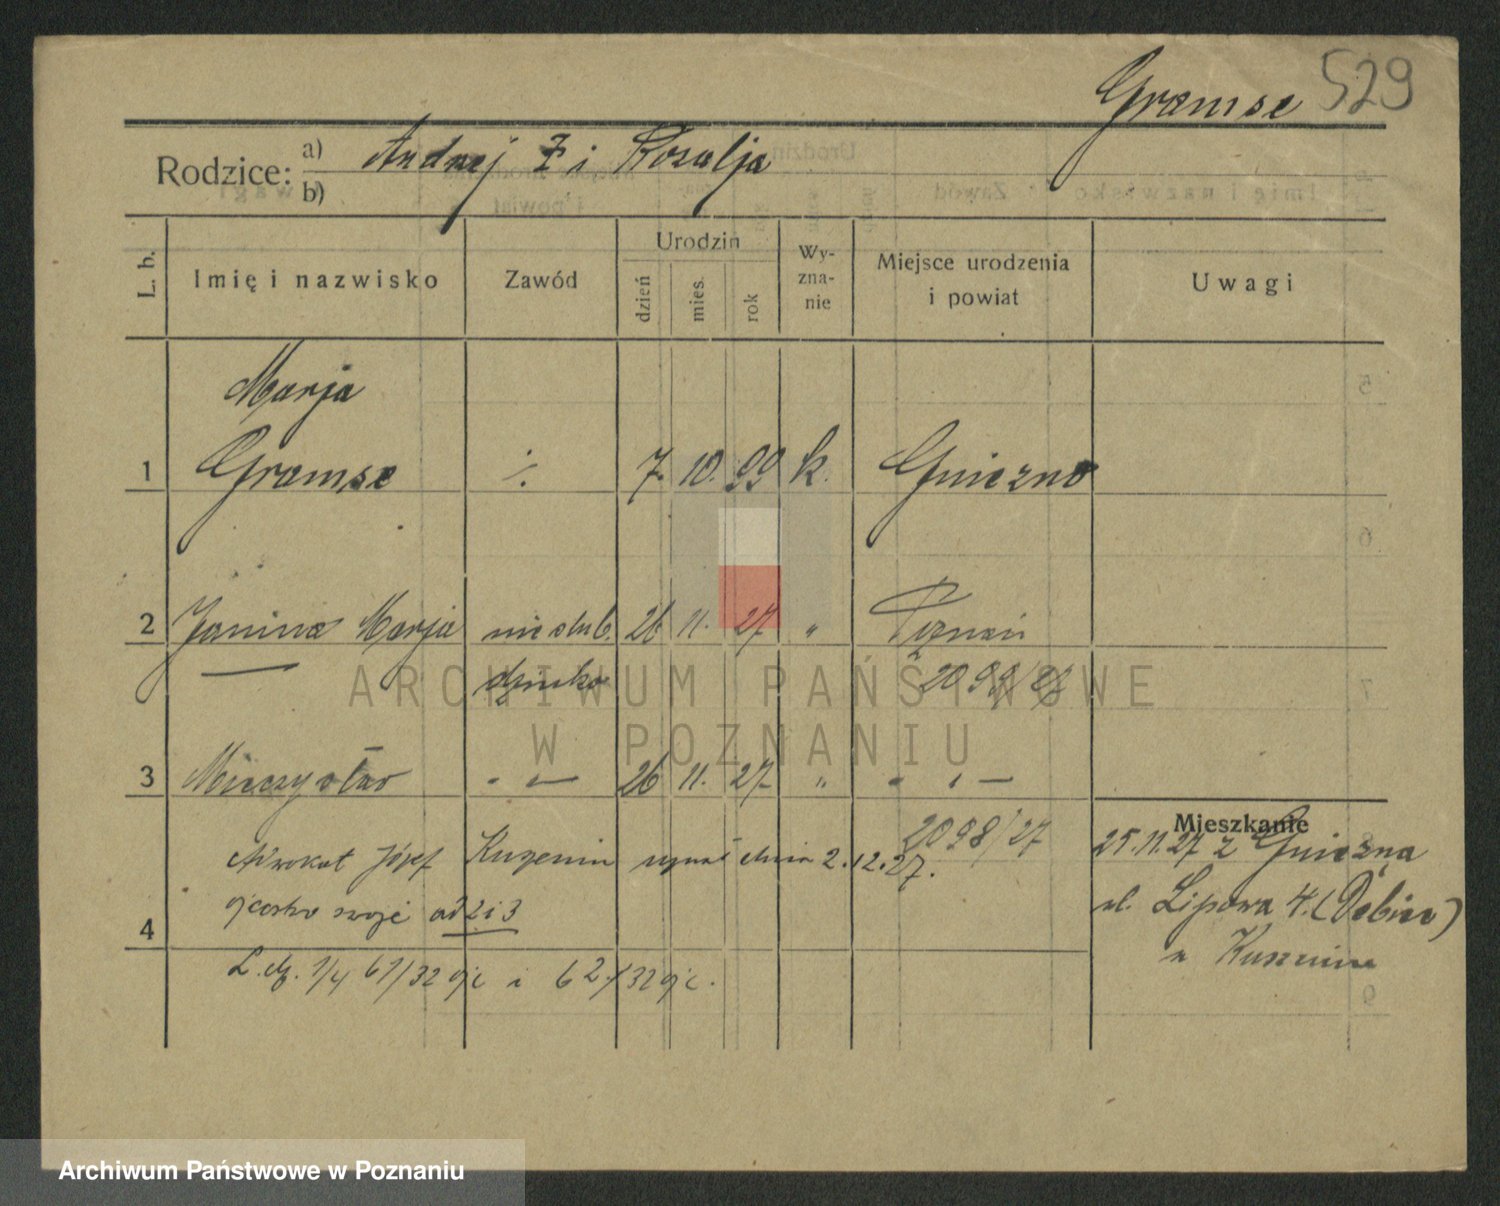 Gramse 529
Rodzice: a) Andrzej Ż i Rozalja
b)
L. b.
Imię i nazwisko
Zawód
Urodzin
dzień
mies.
rok
Wy-
zna-
nie
Miejsce urodzenia
i powiat
Uwagi
Marja
1 Gramse ·/. 7. 10. 99 k. Gniezno
2 Janina Marja nieślub. 26 11. 27 " Poznań
— dziecko 2099/27
3 Mieczysław - „ — 26 11. 27. " - „ —
2098/27
Mieszkanie
25.11.27 z Gniezna
ul. Lipowa 4. (Dębiec)
u
Józef uznał dnia 2.12.27.
4 ojcostwo swoje ad 2 i 3
L.dz. 1/4 61/32 i 62/32
ARCHIWUM PAŃSTWOWE
W POZNANIU
Archiwum Państwowe w Poznaniu